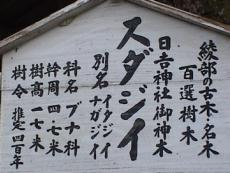 綾部の古木・名木
百選樹木
日吉神社御神木
スダジイ
別名 イタジイ
ナガジイ
科名 ブナ科
幹周 四・七米
樹高 一七米
樹令 推定四百年